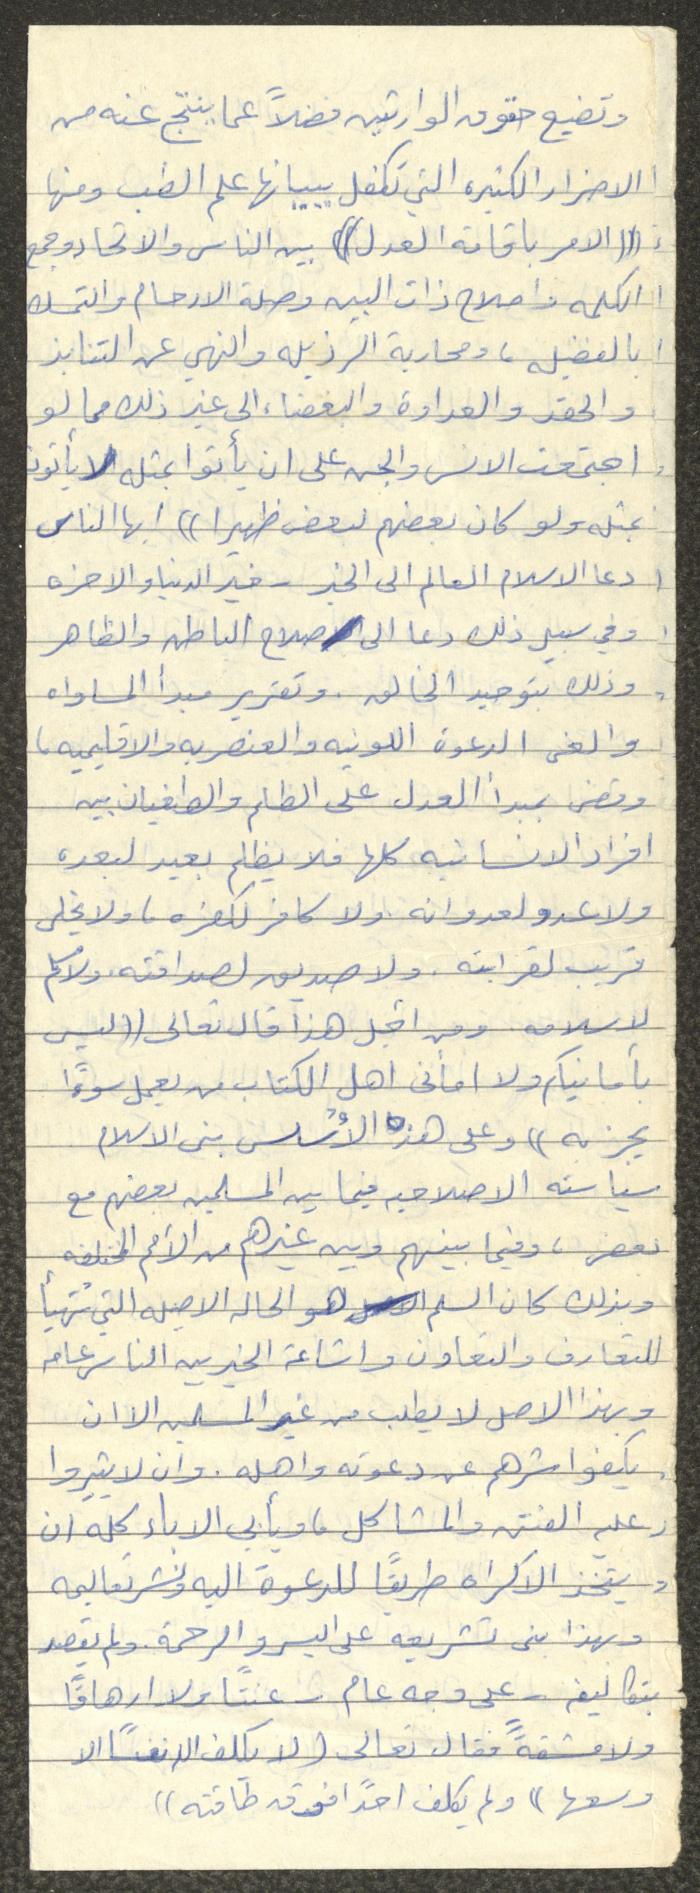 وتضيع حقوق الوارثين فضلاً عما ينتج عنه من
الاضرار الكثيره التي تكفل ببيانها علم الطب ومنها
((الامر باقامة العدل)) بين الناس والاتحاد وجمع
الكلمه واصلاح ذات البين وصلة الارحام والتمسك
بالفضيله، ومحاربة الرذيله والنهي عن التنابذ
والحقد والعداوة والبغضاء، الى غير ذلك مما لو
اجتمعت الانس والجن على ان يأتوا بمثله لا يأتون
بمثله ولو كان بعضهم لبعض ظهيرا)) ايها الناس
دعا الاسلام العالم الى الخير - خير الدنيا والاخره
وفي سبيل ذلك دعا الى اصلاح الباطن والظاهر
وذلك بتوحيد الخالق. وتقرير مبدأ المساواه
والغى الدعوة اللونيه والعنصريه والاقليميه،
وقضى بمبدأ العدل على الظلم والطغيان بين
افراد الانسانيه كلها فلا يظلم بعيد لبعده
ولا عدو لعدوانه. ولا كافر لكفره، ولا يحابى
قريب لقرابته. ولا صديق لصداقته. ولا مسلم
لاسلامه. ومن اجل هذا قال تعالى ((ليس
بأمانيكم ولا امأنى اهل الكتاب من يعمل سوءًا
يجز به)) وعلى هذه الأُسس بنى الاسلام
سياسته الاصلاحيه فيما بين المسلمين بعضهم مع
بعض، وفيما بينهم وبين غيرهم من الأمم المختلفه
وبذلك كان السلم هو الحاله الاصيله التي تُهيأ
للتعارف والتعاون واشاعة الخير بين الناس عامه
وبهذا الاصل لا يطلب من غير المسلمين الا ان
يكفوا شرهم عن دعوته واهله. وان لا يثيروا
عليه الفتن والمشاكل، ويأبى الاباء كله ان
يتخذ الاكراه طريقًا للدعوة اليه ونشر تعاليمه
وبهذا بنى تشريعه على اليسر والرحمة. ولم يقصد
بتكاليفه - على وجه عام - عنتًا ولا ارهاقًا
ولا مشقةً فقال تعالى (لا يكلف الله نفسًا الا
وسعها)) ولم يكلف احدًا فوق طاقته))